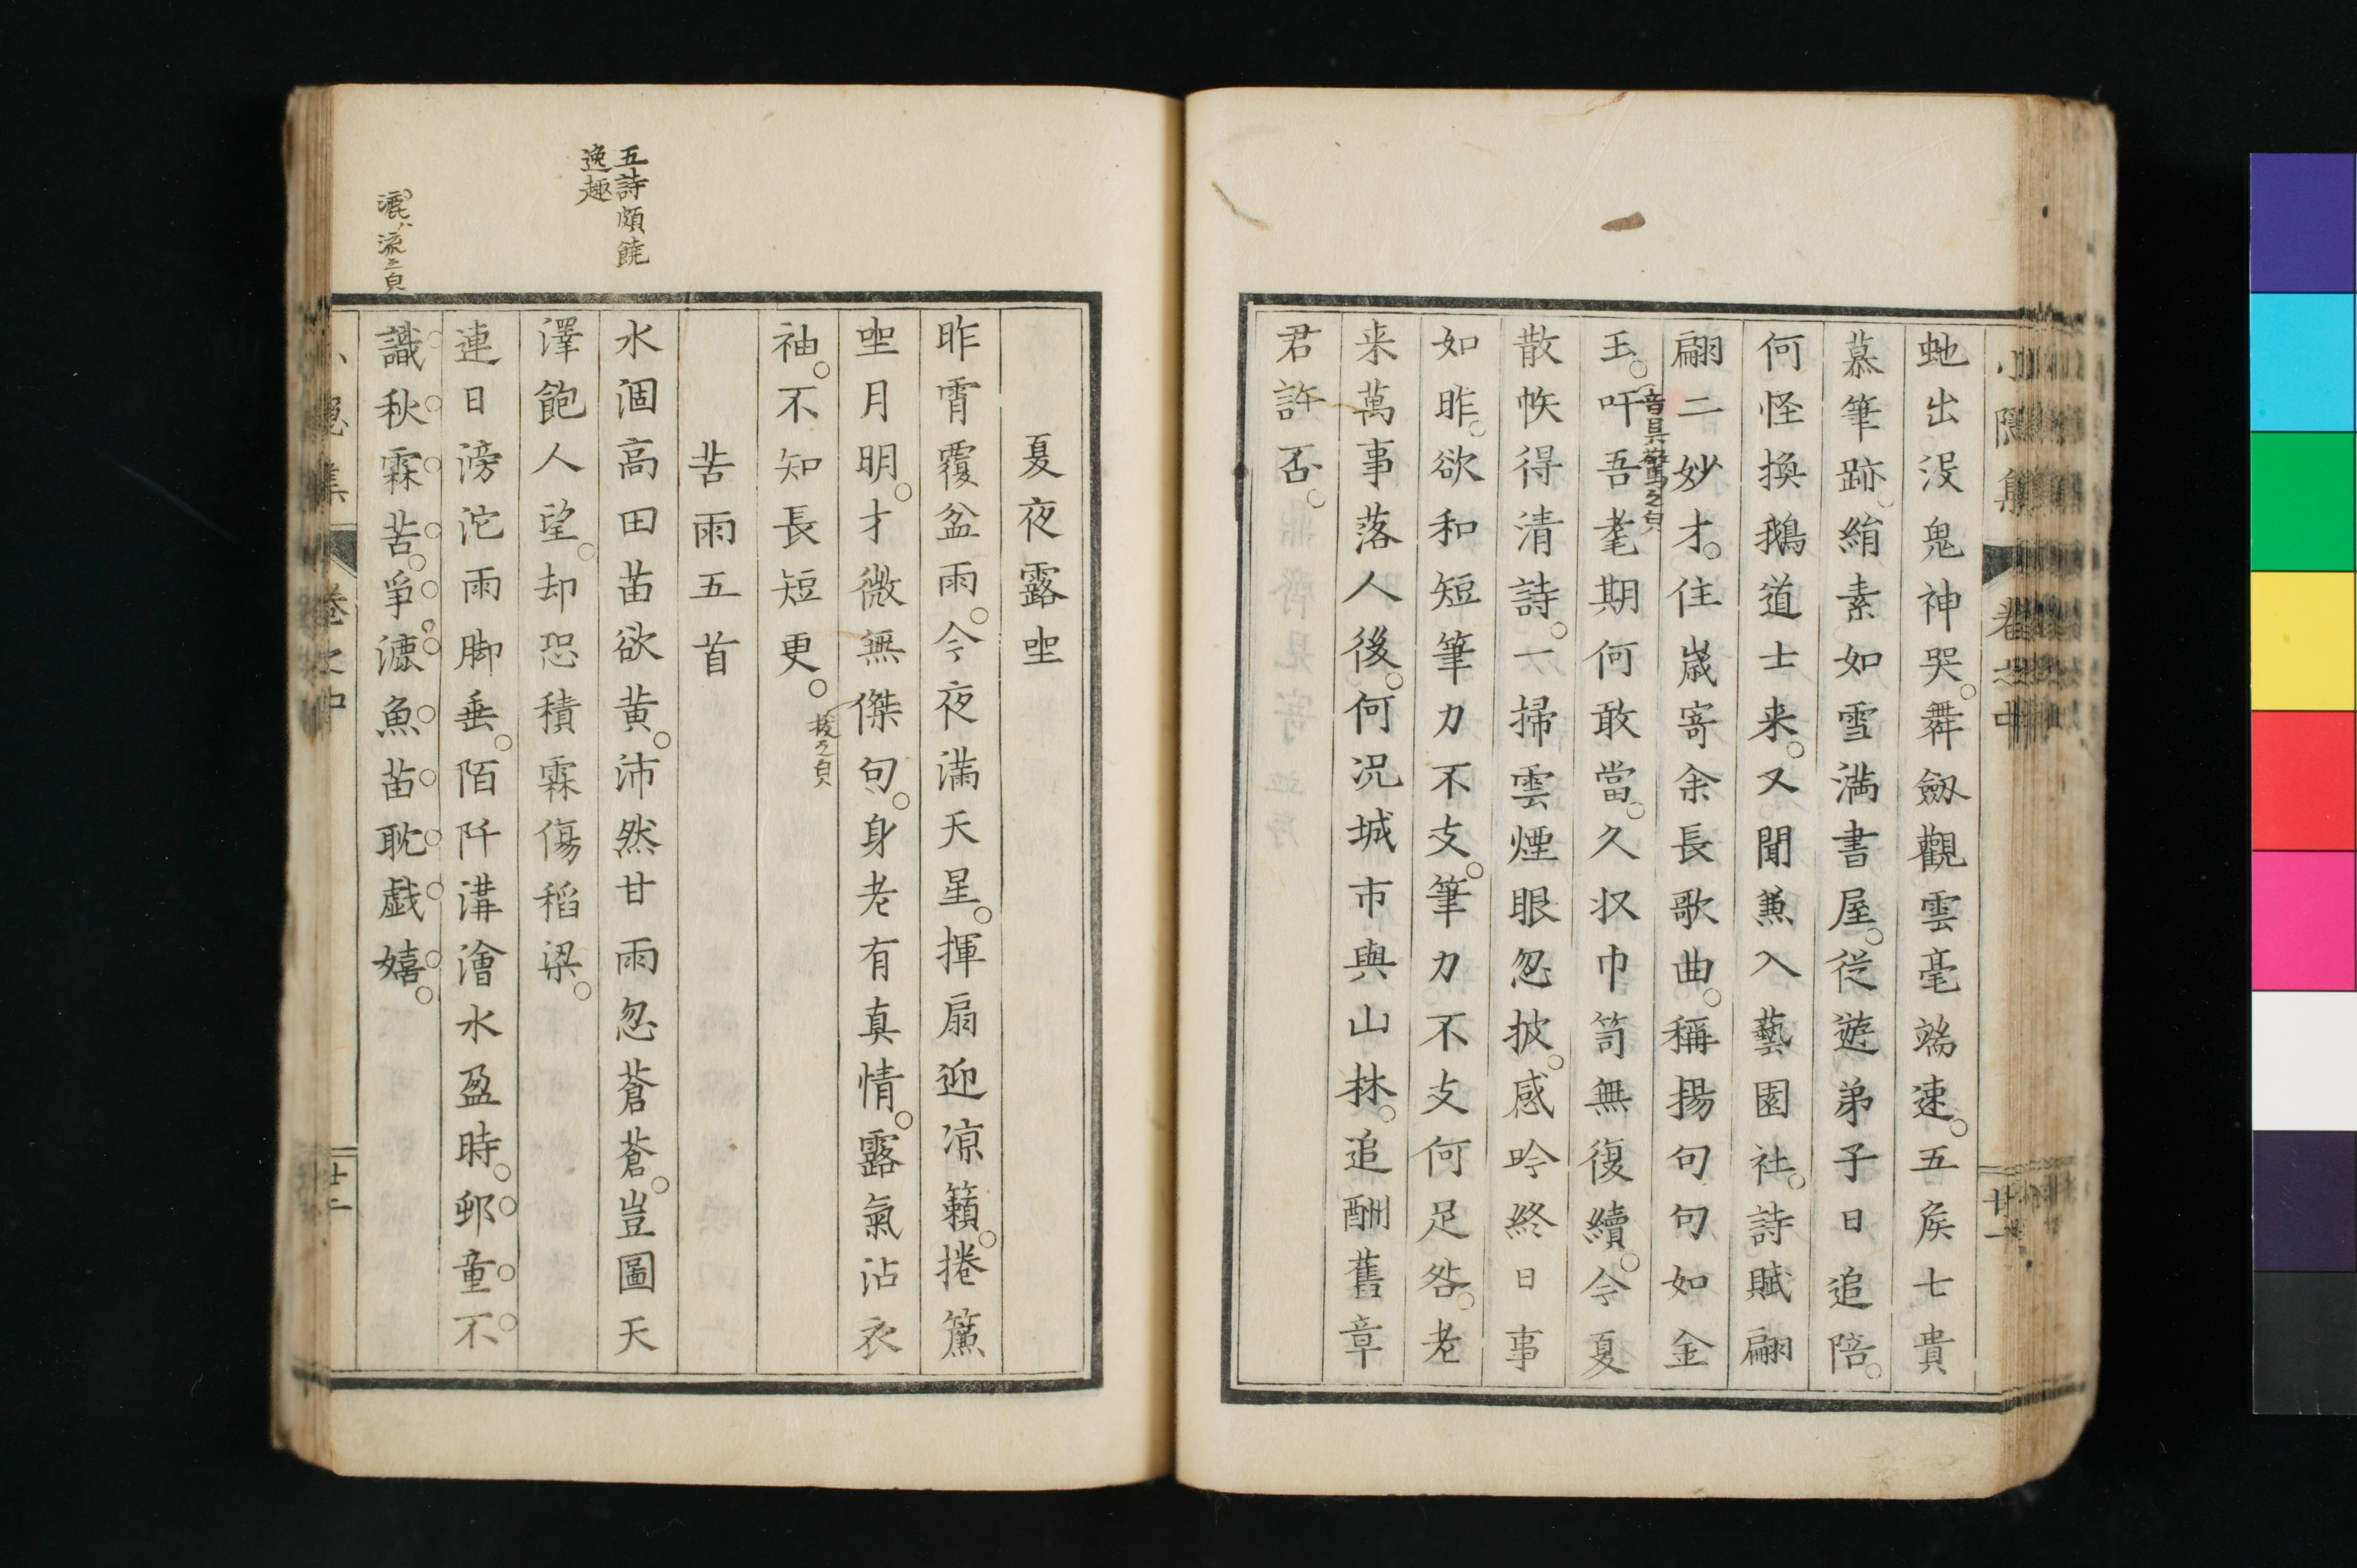 虵出没鬼神哭。舞劔觀雲毫端速。五矦七貴
慕筆跡。絹素如雪満書屋。従遊弟子日追陪。
何怪換鵝道士来。又聞兼入藝園社。詩賦翩
翩二妙才。住嵗寄余長歌曲。稱揚句句如金
玉。吁吾耄期何敢當。久収巾笥無復續。今夏
散帙得清詩。一掃雲煙眼忽披。感吟終日事
如昨。欲和短筆力不支。筆力不支何足咎。老
来萬事落人後。何况城市與山林。追酬舊章
君許否。
夏夜露坐
昨霄覆盆雨。今夜満天星。揮扇迎凉籟。捲簾
坐月明。才微無傑句。身老有真情。露氣沾衣
袖。不知長短更。
苦雨五首
水涸高田苗欲黄。沛然甘雨忽蒼蒼。豈圖天
澤飽人望。却恐積霖傷稻梁。
連日滂沱雨脚垂。陌阡溝澮水盈時。邨童不
識秋霖苦。爭漉魚苗耽戯嬉。
五詩頗饒
逸趣
卷之中
廿一
廿二